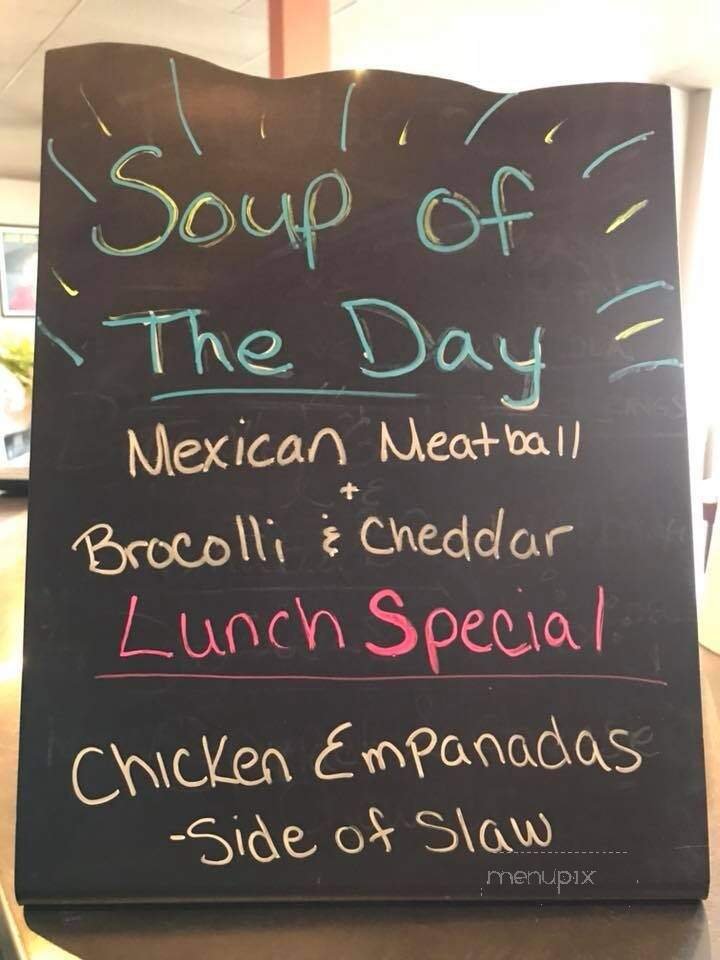 Soup of
The Day
Mexican Meatball
+
Brocolli & Cheddar
Lunch Special
Chicken Empanadas
-Side of Slaw
menupix